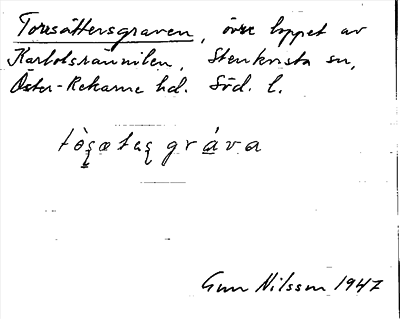 Toresättersgraven, övre loppet av
Karlbolsrännilen, Stenkvista sn,
Öster-Rekarne hd. Söd. l.
gráva
Gun Nilsson 1947